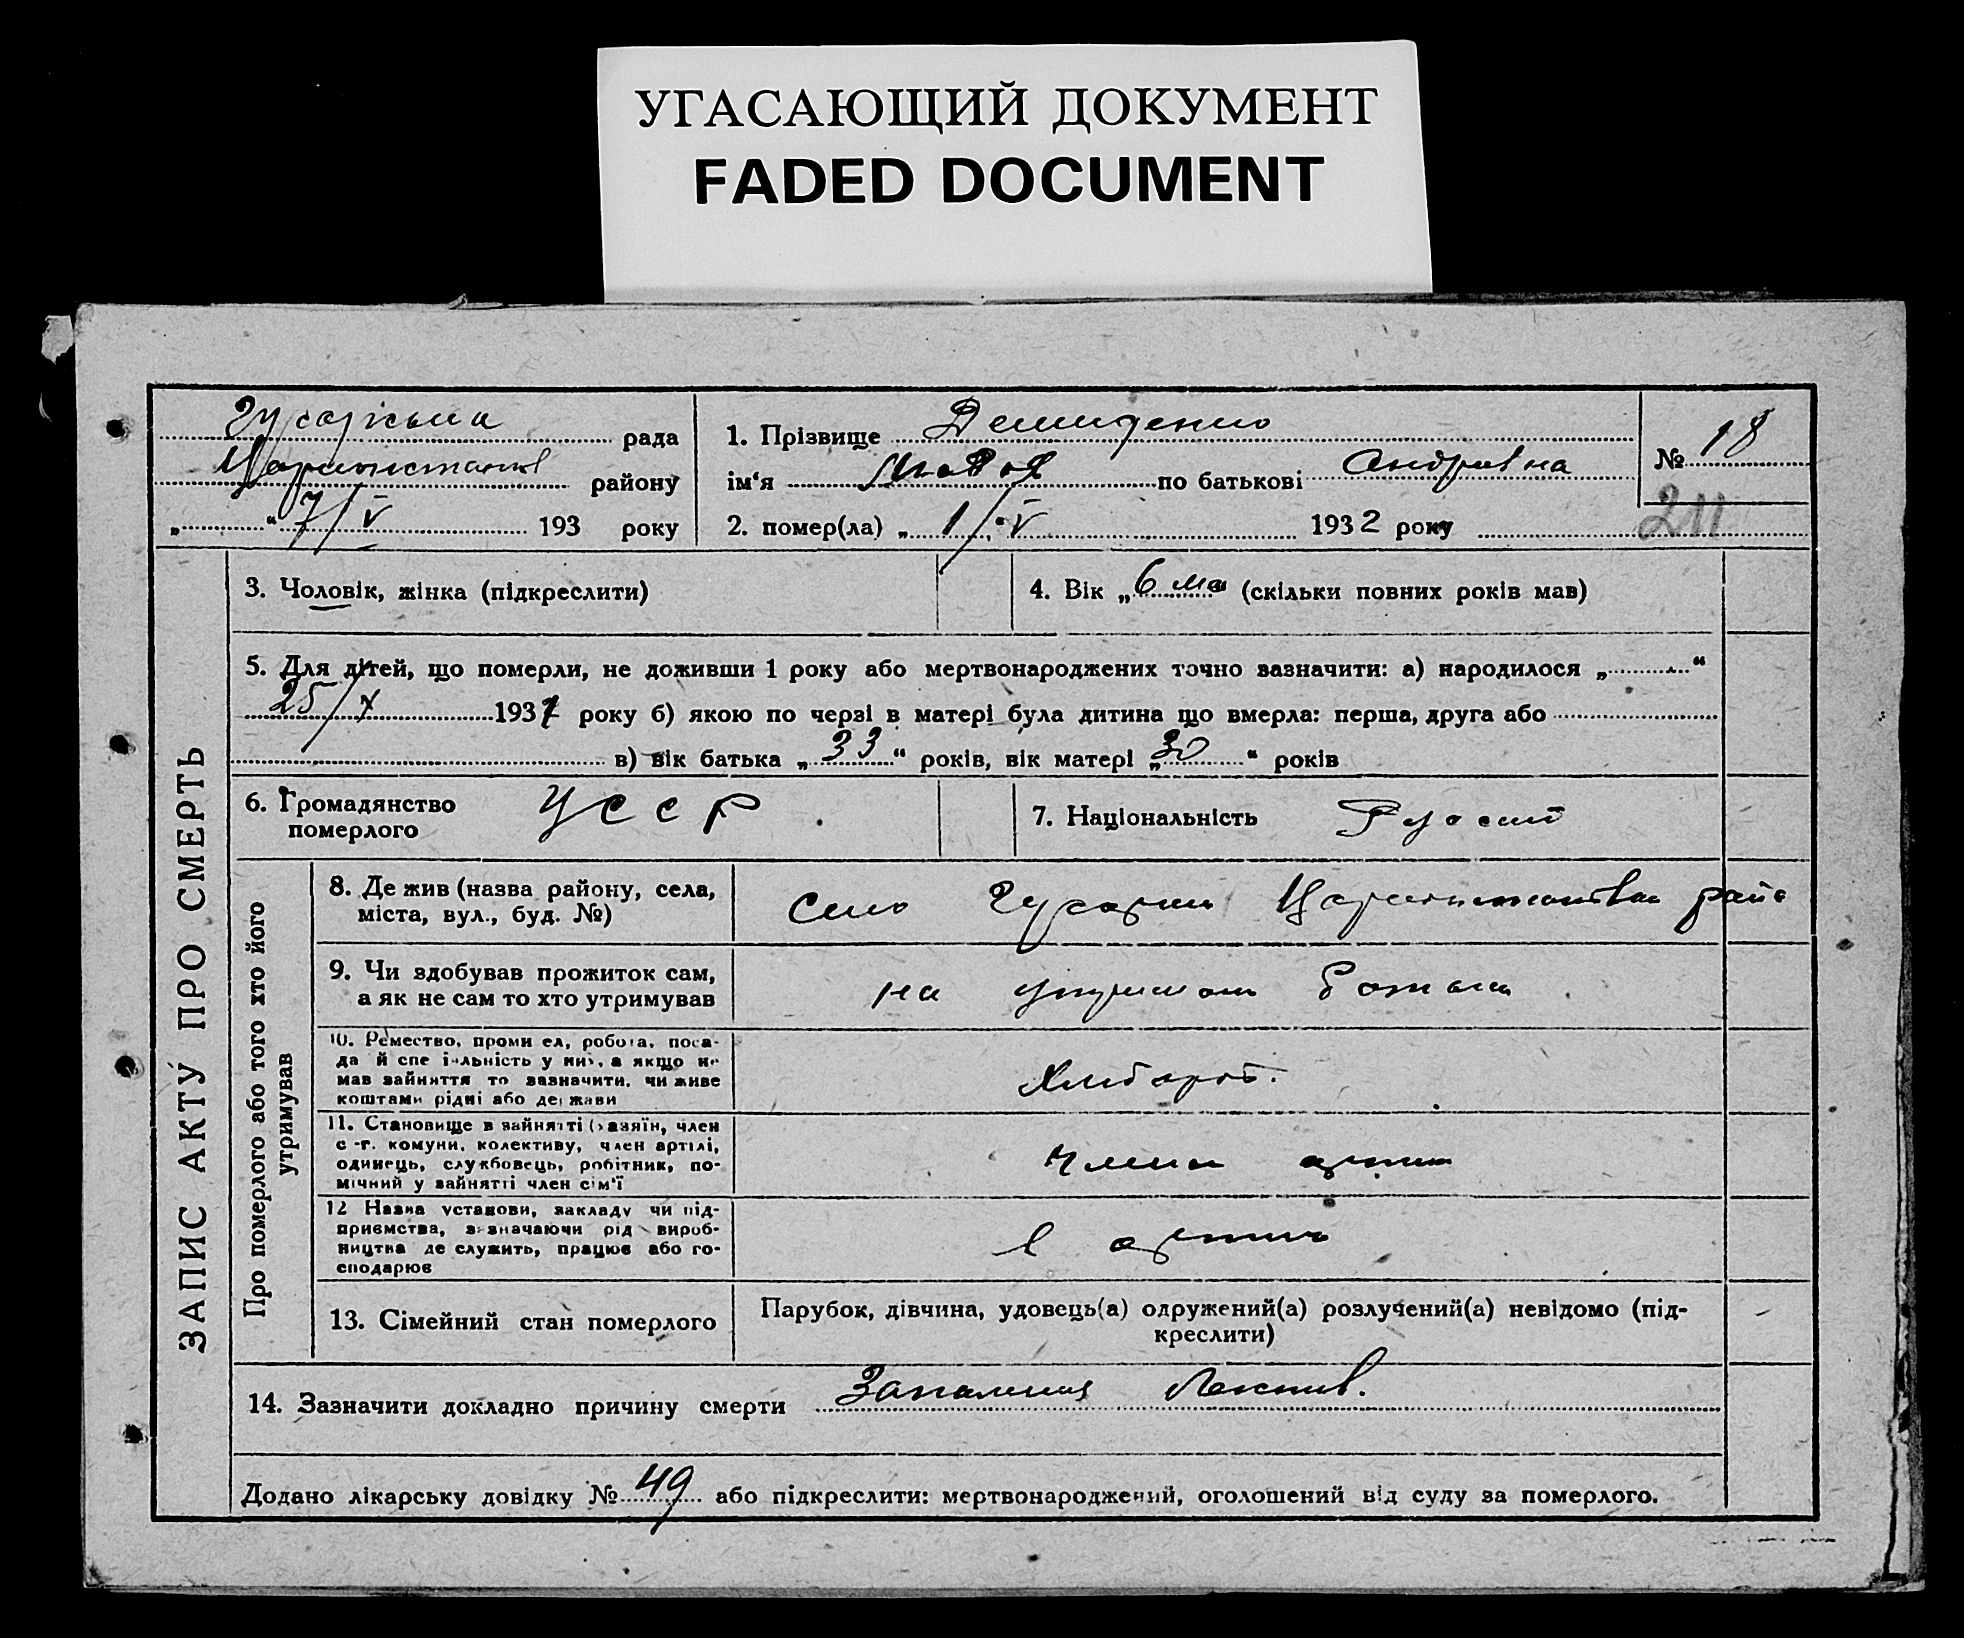 УГАСАЮЩИЙ ДОКУМЕНТ
FADED DOCUMENT
рада
району
„ “ 7/V 193 року
1. Прізвище Демиденко
ім‘я по батькові
2. помер(ла) „ 1/V 1932 року
№ 18
211
ЗАПИС АКТУ ПРО СМЕРТЬ
3. Чоловік, жінка (підкреслити)
4. Вік „ 6 ме “ (скільки повних років мав)
5. Для дітей, що померли, не доживши 1 року або мертвонароджених точно зазначити: а) народилося „ “
25/X 193 року б) якою по черзі в матері була дитина що вмерла: перша, друга або
в) вік батька „ 33 “ років, вік матері „ 30 “ років
6. Громадянство
померлого
УССР
7. Національність
Про померлого або того хто його
утримував
8. Де жив (назва району, села,
міста, вул., буд. №)
село
9. Чи здобував прожиток сам,
а як не сам то хто утримував
на
10. Ремество, проми ел, робота, поса-
да й спе іяльність у них, а якщо не
мав зайняття то зазначити, чи живе
коштами рідні або держави
Хлібороб.
11. Становище в зайнятті (хазяїн, член
с -г. комуни, колективу, член артілі,
одинець, службовець, робітник, по-
мічний у зайнятті член сім'ї
12 Назва установи, закладу чи під-
приємства, взначаючи рід вироб-
ництва де служить, працює або го-
сподарює
в
13. Сімейний стан померлого
Парубок, дівчина, удовець(а) одружений(а) розлучений(а) невідомо (під-
креслити)
14. Зазначити докладно причину смерти
Запалення
Додано лікарську довідку № 49 або підкреслити: мертвонароджений, оголошений від суду за померлого.